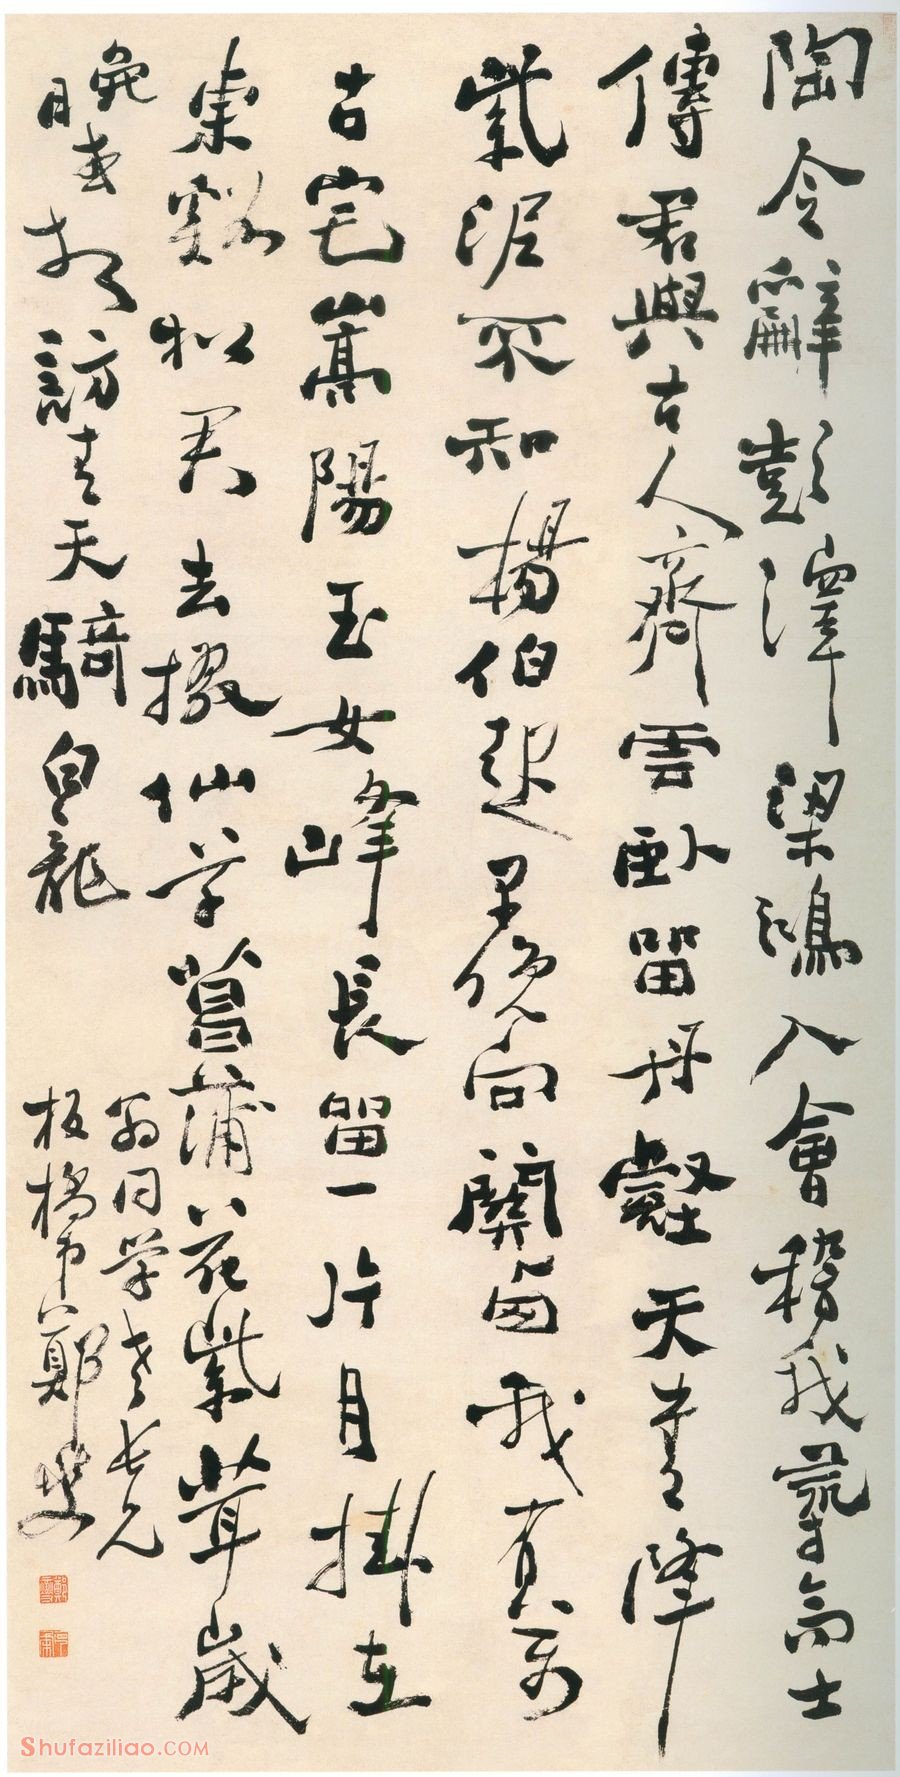 陶令辭彭澤梁鴻入會稽我尋高士
傳君與古人齊雲臥留丹壑天書降
紫泥不知楊伯起早晚向關西我有萬
古宅嵩陽玉女峰長留一片月掛在
東谿松君去掇仙草菖蒲花紫茸歲
晚或相訪青天騎白龍
翁同學老長兄
板橋弟鄭燮
Shufaziliao.COM